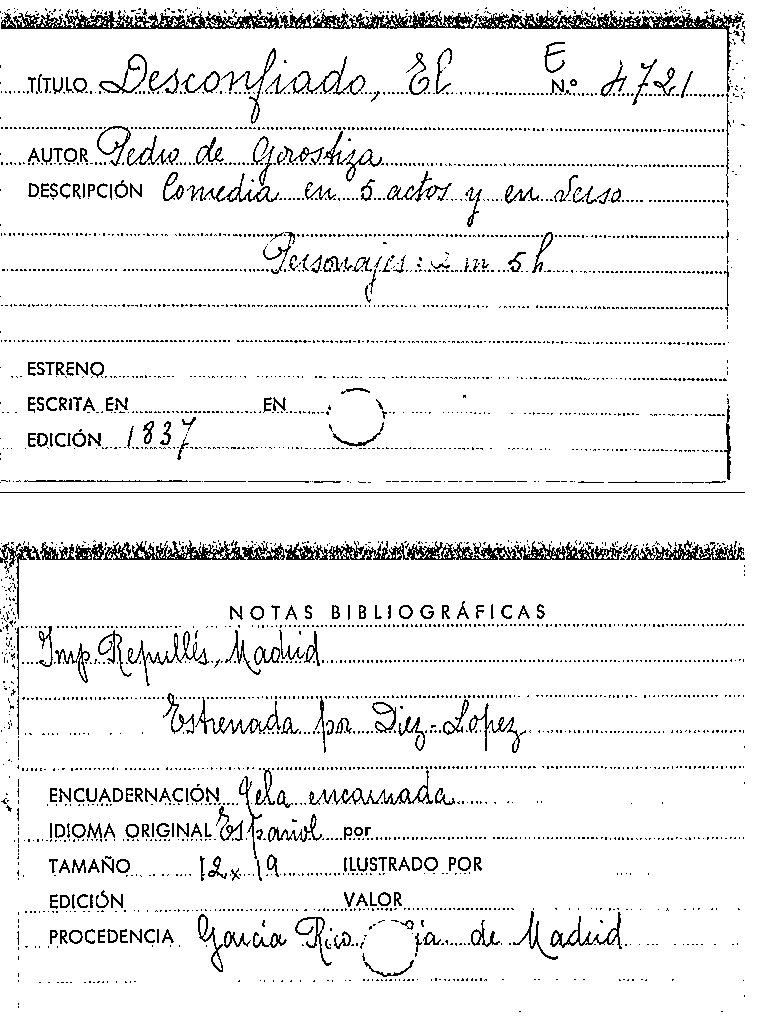 E
TÍTULO Desconfiado, El N.º 4721
AUTOR Pedro de Gorostiza
DESCRIPCIÓN Comedia en 5 actos y en verso
Personajes: 2 m 5 h
ESTRENO
ESCRITA EN EN
EDICIÓN 1837
NOTAS BIBLIOGRÁFICAS
Imp. Repullés, Madrid
Estrenada por Diez-Lopez
ENCUADERNACIÓN Tela encarnada
IDIOMA ORIGINAL Español por
TAMAÑO 12 x 19 ILUSTRADO POR
EDICIÓN VALOR
PROCEDENCIA García Rico de Madrid